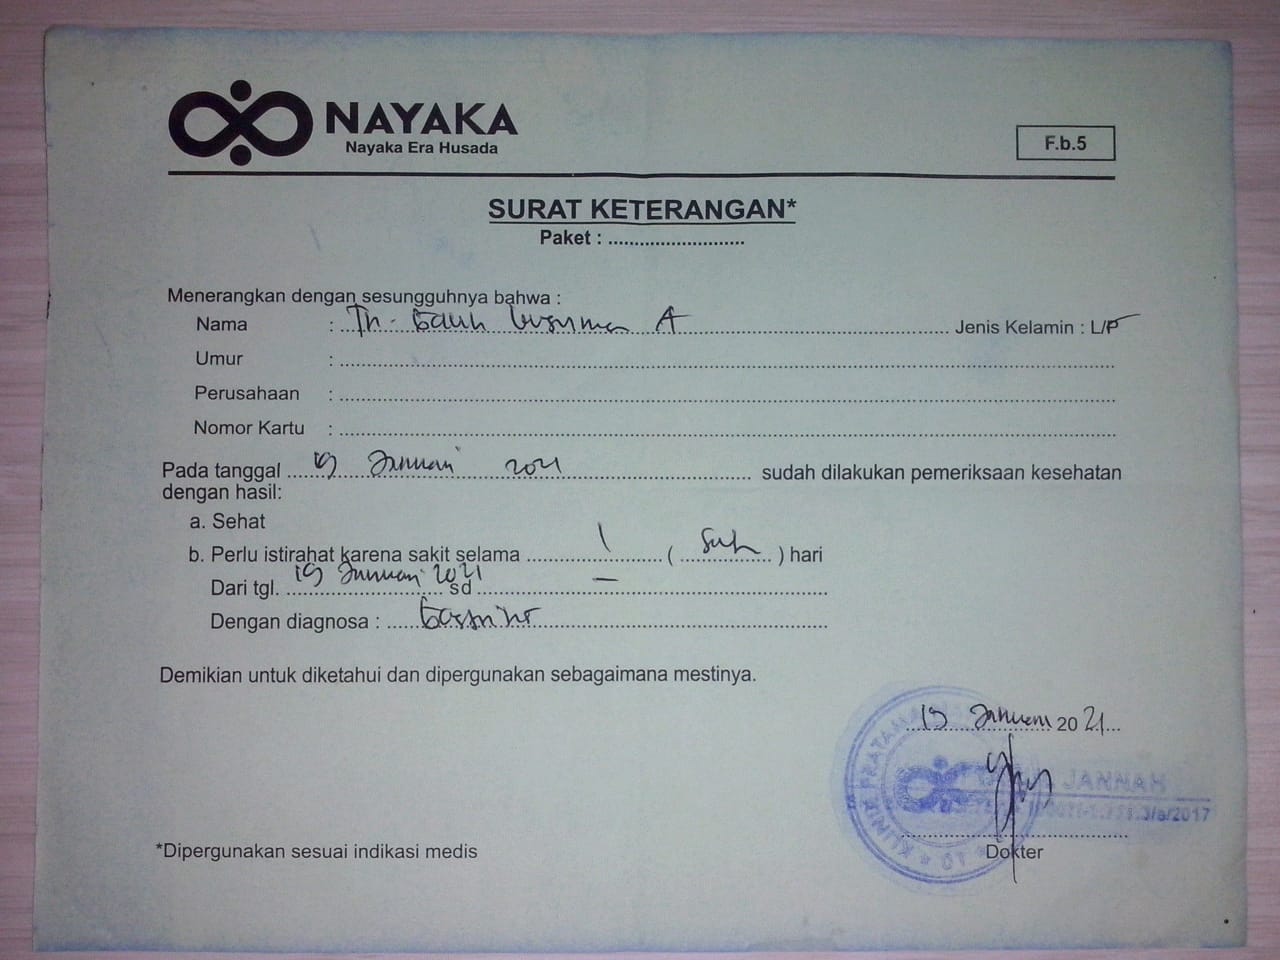 NAYAKA
Nayaka Era Husada
F.b.5
SURAT KETERANGAN*
Paket : ..........................
Menerangkan dengan sesungguhnya bahwa :
Nama : Tn. Galih kusuma A Jenis Kelamin : L/P
Umur :
Perusahaan :
Nomor Kartu :
Pada tanggal 19 Januari 2021 sudah dilakukan pemeriksaan kesehatan
dengan hasil:
a. Sehat
b. Perlu istirahat karena sakit selama 1 ( satu ) hari
Dari tgl. 19 Januari 2021 sd –
Dengan diagnosa :
Demikian untuk diketahui dan dipergunakan sebagaimana mestinya.
19 Januari 2021
KLINIK PRATAMA
JANNAH
/2017
10
Dokter
*Dipergunakan sesuai indikasi medis